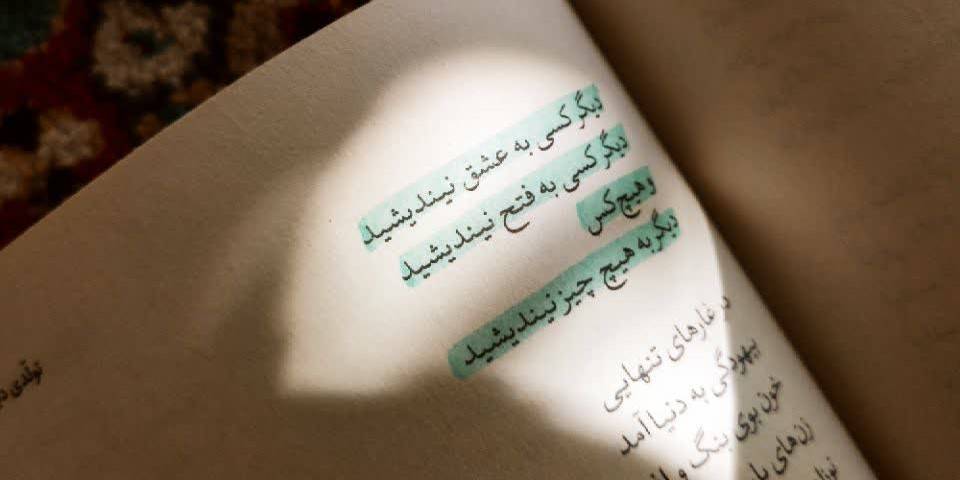 دیگر کسی به عشق نیندیشید
دیگر کسی به فتح نیندیشید
و هیچ کس
دیگر به هیچ چیز نیندیشید
در غارهای تنهایی
بیهودگی به دنیا آمد
خون بوی بنگ و
زن‌های
تولّدی